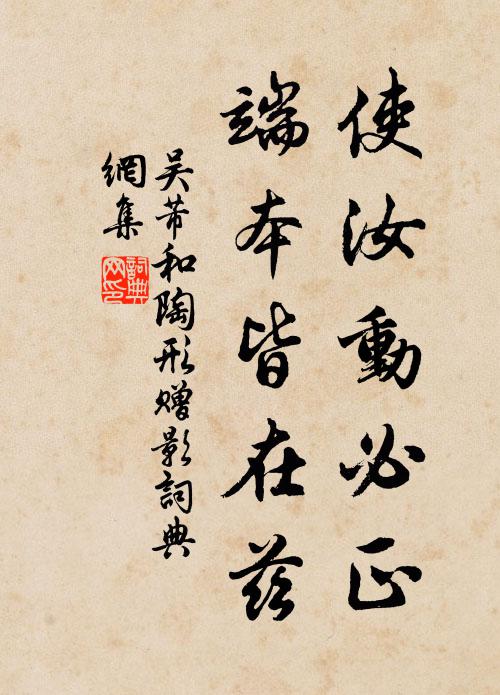 使汝動必正
端本皆在茲
吴芾和陶形赠影詞典
網集
詞典
网印